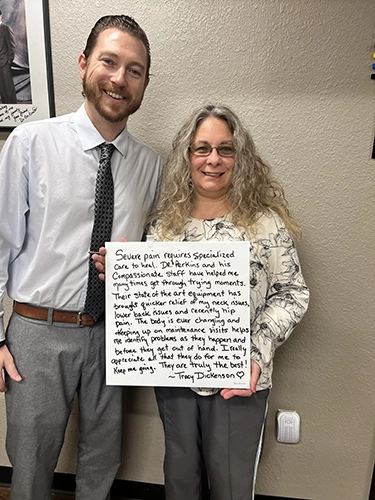 Severe pain requires specialized
care to heal. Dr Perkins and his
Compassionate staff have helped me
many times get through trying moments.
Their state of the art equipment has
brought quicker relief of my neck issues,
lower back issues and recently hip
pain. The body is ever changing and
keeping up on maintenance visits helps
me identify problems as they happen and
before they get out of hand. I really
appreciate all that they do for me to
keep me going. They are truly the best!
~Tracy Dickenson ♡